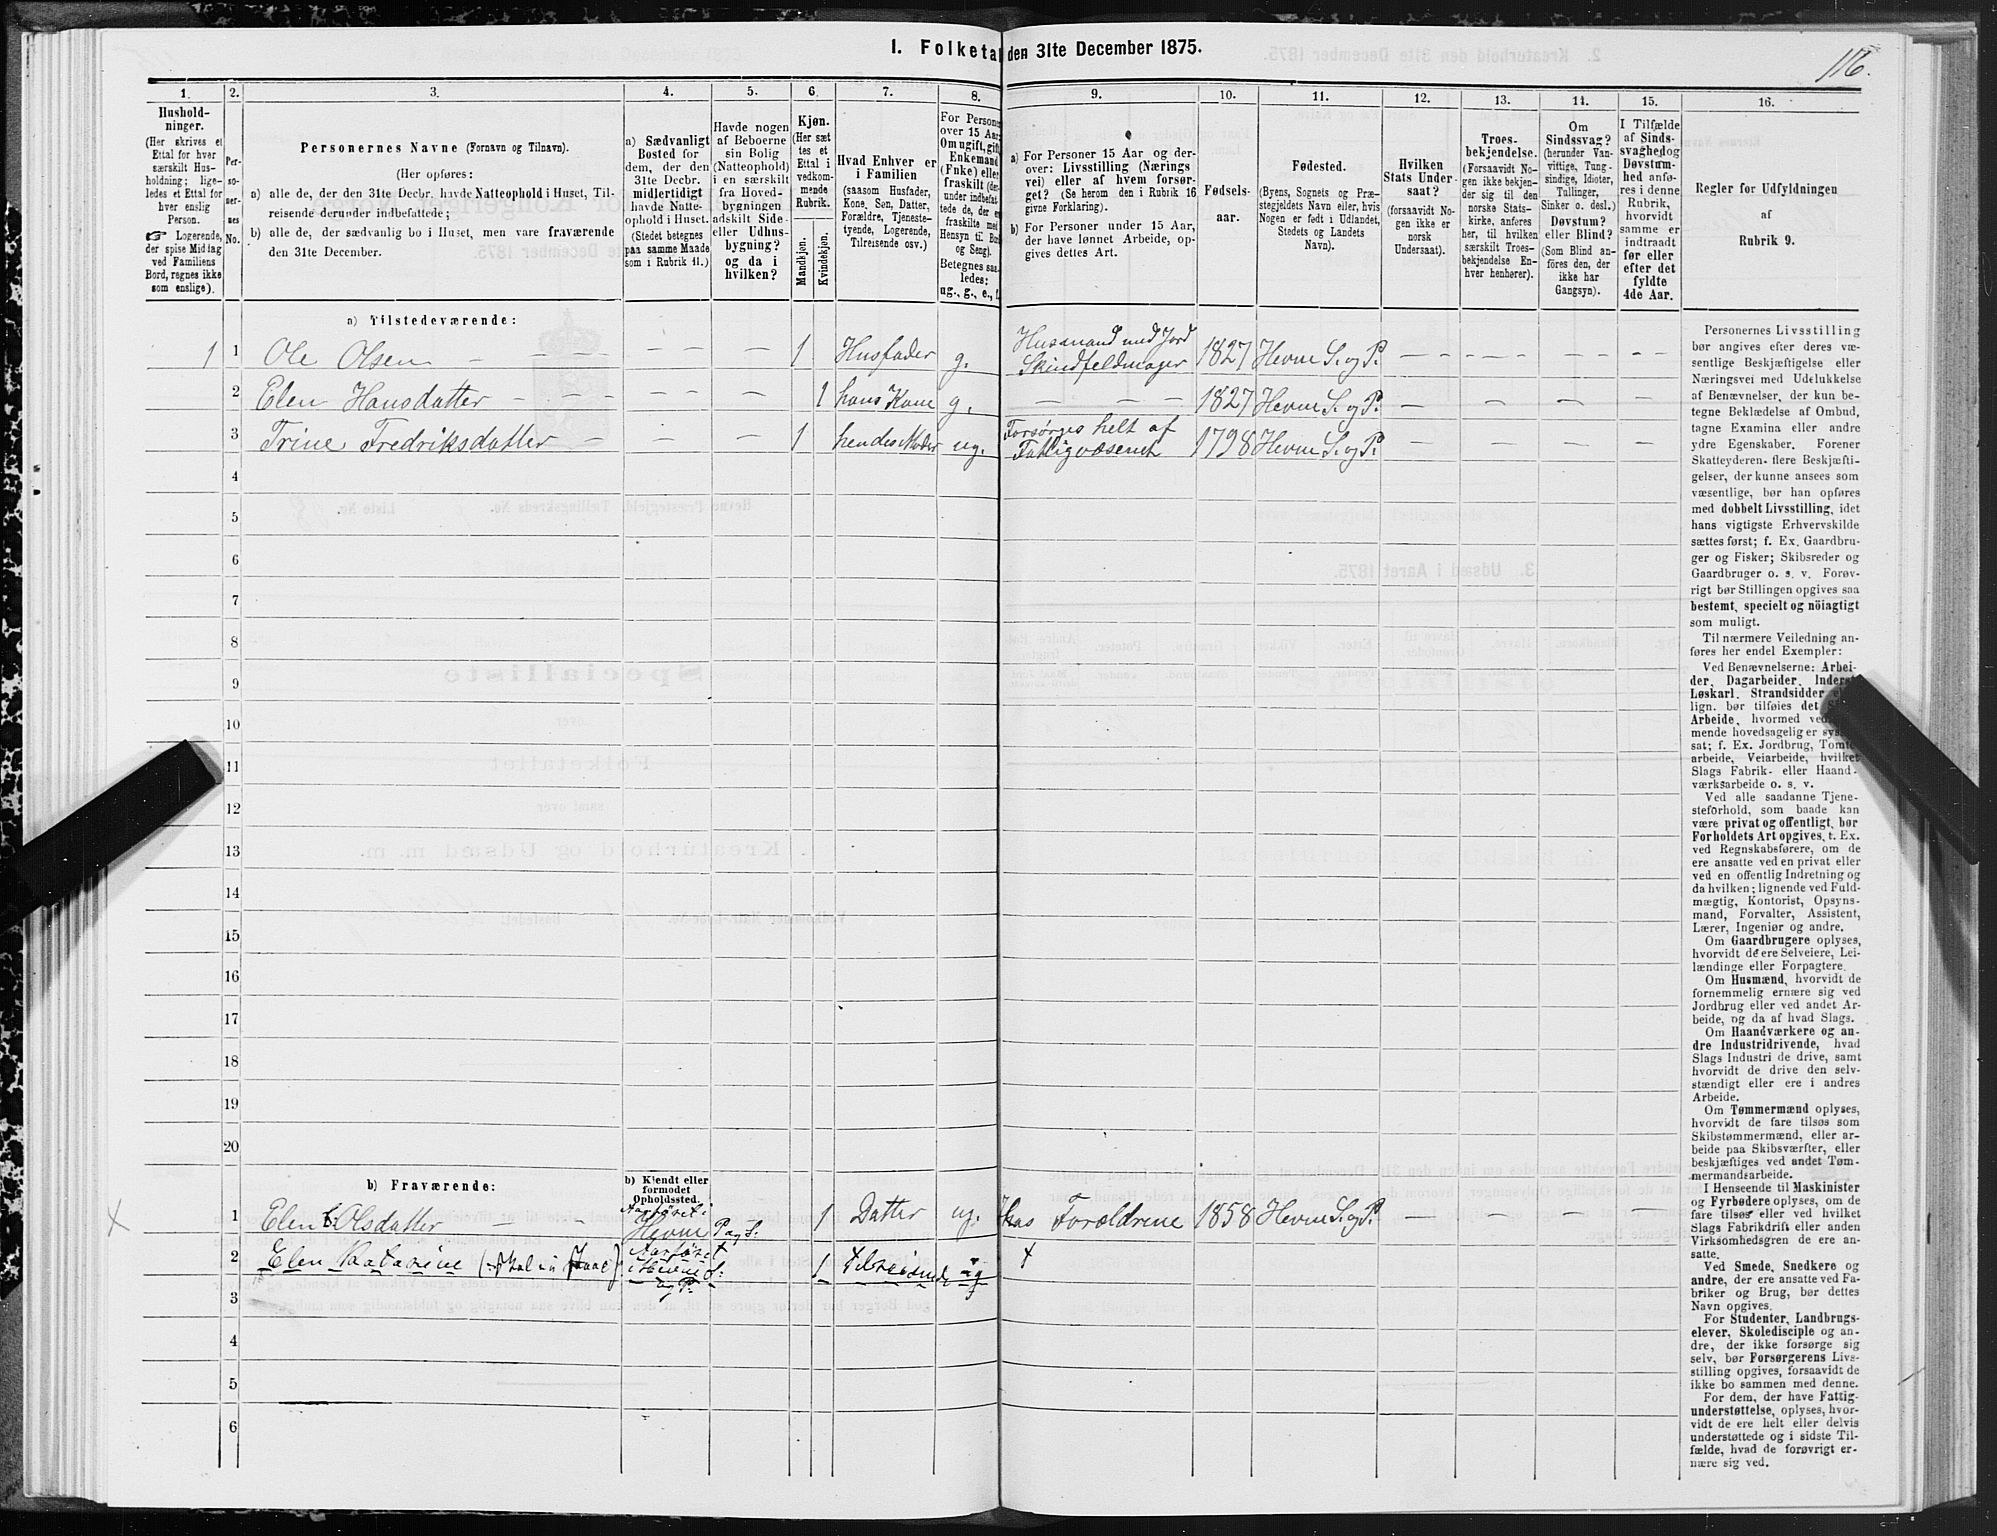 I. Folketal den 31te December 1875.
116.
1.
Husholdninger.
(Her skrives et
Ettal for hver
særskilt Husholdning;
ligeledes et Ettal for
hver enslig
Person.
☞ Logerende,
der spise Middag
ved Familiens
Bord, regnes ikke
som enslige).
2.
Personernes
No.
3.
Personernes Navne (Fornavn og Tilnavn).
(Her opføres:
a) alle de, der den 31te Decbr. havde Natteophold i Huset, Tilreisende derunder indbefattede;
b) alle de, der sædvanlig bo i Huset, men vare fraværende
den 31te December.
4.
a) Sædvanligt
Bosted for
dem, der den
31te Decbr.
midlertidigt
havde Natteophold i Huset.
(Stedet betegnes
paa samme Maade
som i Rubrik 11.)
5.
Havde nogen
af Beboerne
sin Bolig
(Natteophold)
i en særskilt
fra Hovedbygningen
adskilt Side-
eller Udhusbygning?
og da i
hvilken?
6.
Kjøn.
(Her sættes et
Ettal i
vedkommende
Rubrik.
Mandkjøn.
Kvindekjøn.
7.
Hvad Enhver er
i Familien
(saasom Husfader,
Kone, Søn, Datter,
Forældre, Tjenestetyende, Logerende,
Tilreisende osv.)
8.
For Personer
over 15 Aar:
Om ugift, gift,
Enkemand
(Enke) eller
fraskilt
Betegnes saaledes:
ug., g., e., f.
9.
a) For Personer 15 Aar og derover: Livsstilling (Næringsvei) eller af hvem forsørget? (Se herom den i Rubrik 16
givne Forklaring).
b) For Personer under 15 Aar,
der have lønnet Arbeide, opgives dettes Art.
10.
Fødselsaar.
11.
Fødested.
(Byens, Sognets og Præstegjeldets Navn eller, hvis
Nogen er født i Udlandet,
Stedets og Landets
Navn).
12.
Hvilken
Stats Undersaat?
(forsaavidt Nogen ikke er
norsk
Undersaat).
13.
Troesbekjendelse.
(Forsaavidt Nogen ikke bekjender sig til den
norske Statskirke, anføres
her, til hvilken
særskilt Troesbekjendelse Enhver henhører).
14.
Om
Sindssvag?
(herunder Vanvittige, Tungsindige, Idioter,
Tullinger,
Sinker o. desl.)
Døvstum?
eller Blind?
(Som Blind anføres den, der
ikke har
Gangsyn).
15.
I Tilfælde
af Sindssvaghed og
Døvstumhed anføres i denne
Rubrik,
hvorvidt
samme er
indtraadt
før eller
efter det
fyldte
4de Aar.
16.
Regler for Udfyldningen
af
Rubrik 9.
a) Tilstedeværende:
1 1 Ole Olsen — — — — — 1 Husfader g. Husmand med Jord Skindfeldmager 1827 Hevne S. og P. — — — —
2 Elen Hansdatter — — — — 1 hans Kone g. — — 1827 Hevne S. og P. — — — —
3 Trine Fredriksdatter — — — 1 hendes Moder ug. Forsørges helt af Fattigvæsenet 1798 Hevne S. og P. — — — —
4
5
6
7
8
9
10
11
12
13
14
15
16
17
18
19
20
b) Fraværende:
b) Kjendt eller
formodet
Opholdssted.
1 Elen Olsdatter — — Hevne P. og S. 1 Datter ug. hos Forældrene 1858 Hevne S. og P. — — — —
2 Elen Katarine 1 tilreisende ug
3
4
5
6
Personernes Livsstilling
bør angives efter deres væsentlige Beskjæftigelse eller
Næringsvei med Udelukkelse
af Benævnelser, der kun betegne Beklædelse af Ombud,
tagne Examina eller andre
ydre Egenskaber. Forener
Skatteyderen flere Beskjæftigelser, der kunne ansees som
væsentlige, bør han opføres
med dobbelt Livsstilling, idet
hans vigtigste Erhvervskilde
sættes først; f. Ex. Gaardbruger og Fisker; Skibsreder og
Gaardbruger o. s. v. Forøvrigt bør Stillingen opgives saa
bestemt, specielt og nöiagtigt
som muligt.
Til nærmere Veiledning anføres her endel Exempler:
Ved Benævnelserne: Arbeider, Dagarbeider, Inderst,
Løskarl, Strandsidder
lign. bør tilføies det
Arbeide, hvormed
mende hovedsagelig er
sat; f. Ex. Jordbrug, Tomtearbeide, Veiarbeide, hvilket
Slags Fabrik- eller Haandværksarbeide o. s. v.
Ved alle saadanne Tjenesteforhold, som baade kan
være privat og offentligt, bør
Forholdets Art opgives, t. Ex.
ved Regnskabsførere, om de
ere ansatte ved en privat eller
ved en offentlig Indretning og
da hvilken; lignende ved Fuldmægtig, Kontorist, Opsynsmand, Forvalter, Assistent,
Lærer, Ingeniør og andre.
Om Gaardbrugere oplyses,
hvorvidt de ere Selveiere, Leilændinge eller Forpagtere.
Om Husmænd, hvorvidt de
fornemmelig ernære sig ved
Jordbrug eller ved andet Arbeide, og da af hvad Slags.
Om Haandværkere og andre Industridrivende, hvad
Slags Industri de drive, samt
hvorvidt de drive den selvstændigt eller ere i andres
Arbeide.
Om Tømmermænd oplyses,
hvorvidt de fare tilsøs som
Skibstømmermænd, eller arbeide paa Skibsværfter, eller
beskjæftiges ved andet Tømmermandsarbeide.
I Henseende til Maskinister
og Fyrbødere oplyses, om de
fare tilsøs eller ved hvilket
Slags Fabrikdrift eller anden
Virksomhedsgren de ere ansatte.
Ved Smede, Snedkere og
andre, der ere ansatte ved Fabriker og Brug, bør dettes
Navn opgives.
For Studenter, Landbrugselever, Skoledisciple og andre, der ikke forsørge sig
selv, bør Forsørgerens Livsstilling opgives, forsaavidt de
ikke bo sammen med denne.
For dem, der have Fattigunderstøttelse, oplyses, hvorvidt de ere helt eller delvis
understøttede og i sidste Tilfælde, hvad de forøvrigt ernære sig ved.